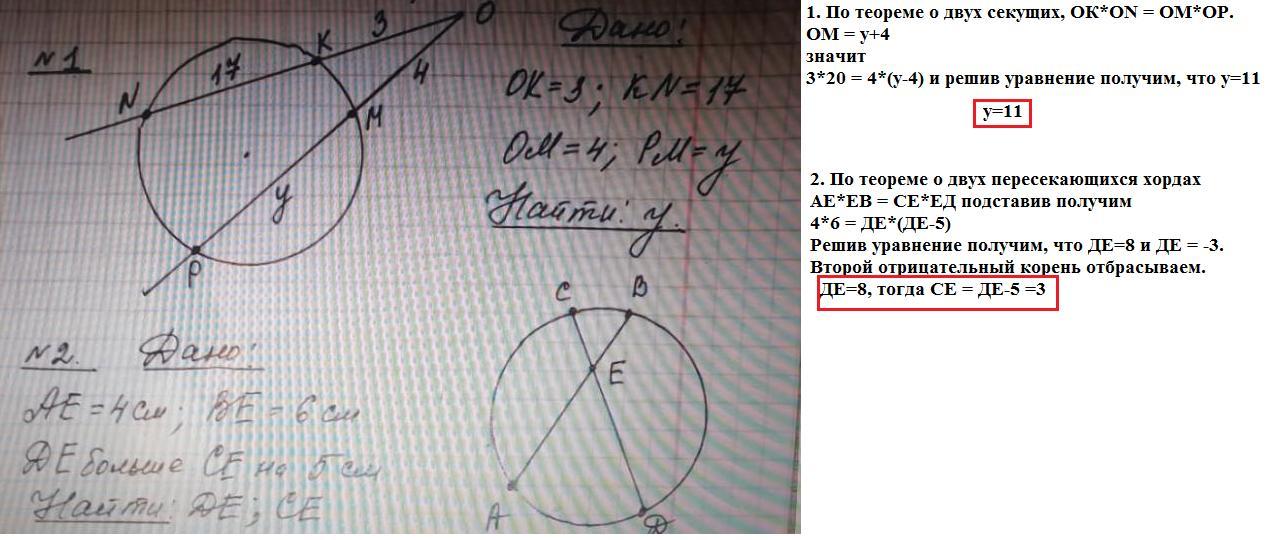 N1
3
O
K
17
4
N
M
y
P
Дано:
OK=3; KN=17
OM=4; PM=y
Найти: y.
N2. Дано:
AE=4см; BE=6см
DE больше CE на 5см
Найти: DE; CE
C
B
E
A
D
1. По теореме о двух секущих, OK*ON = OM*OP.
OM = y+4
значит
3*20 = 4*(y-4) и решив уравнение получим, что y=11
y=11
2. По теореме о двух пересекающихся хордах
AE*EB = CE*ЕД подставив получим
4*6 = ДЕ*(ДЕ-5)
Решив уравнение получим, что ДЕ=8 и ДЕ = -3.
Второй отрицательный корень отбрасываем.
ДЕ=8, тогда СЕ = ДЕ-5 =3